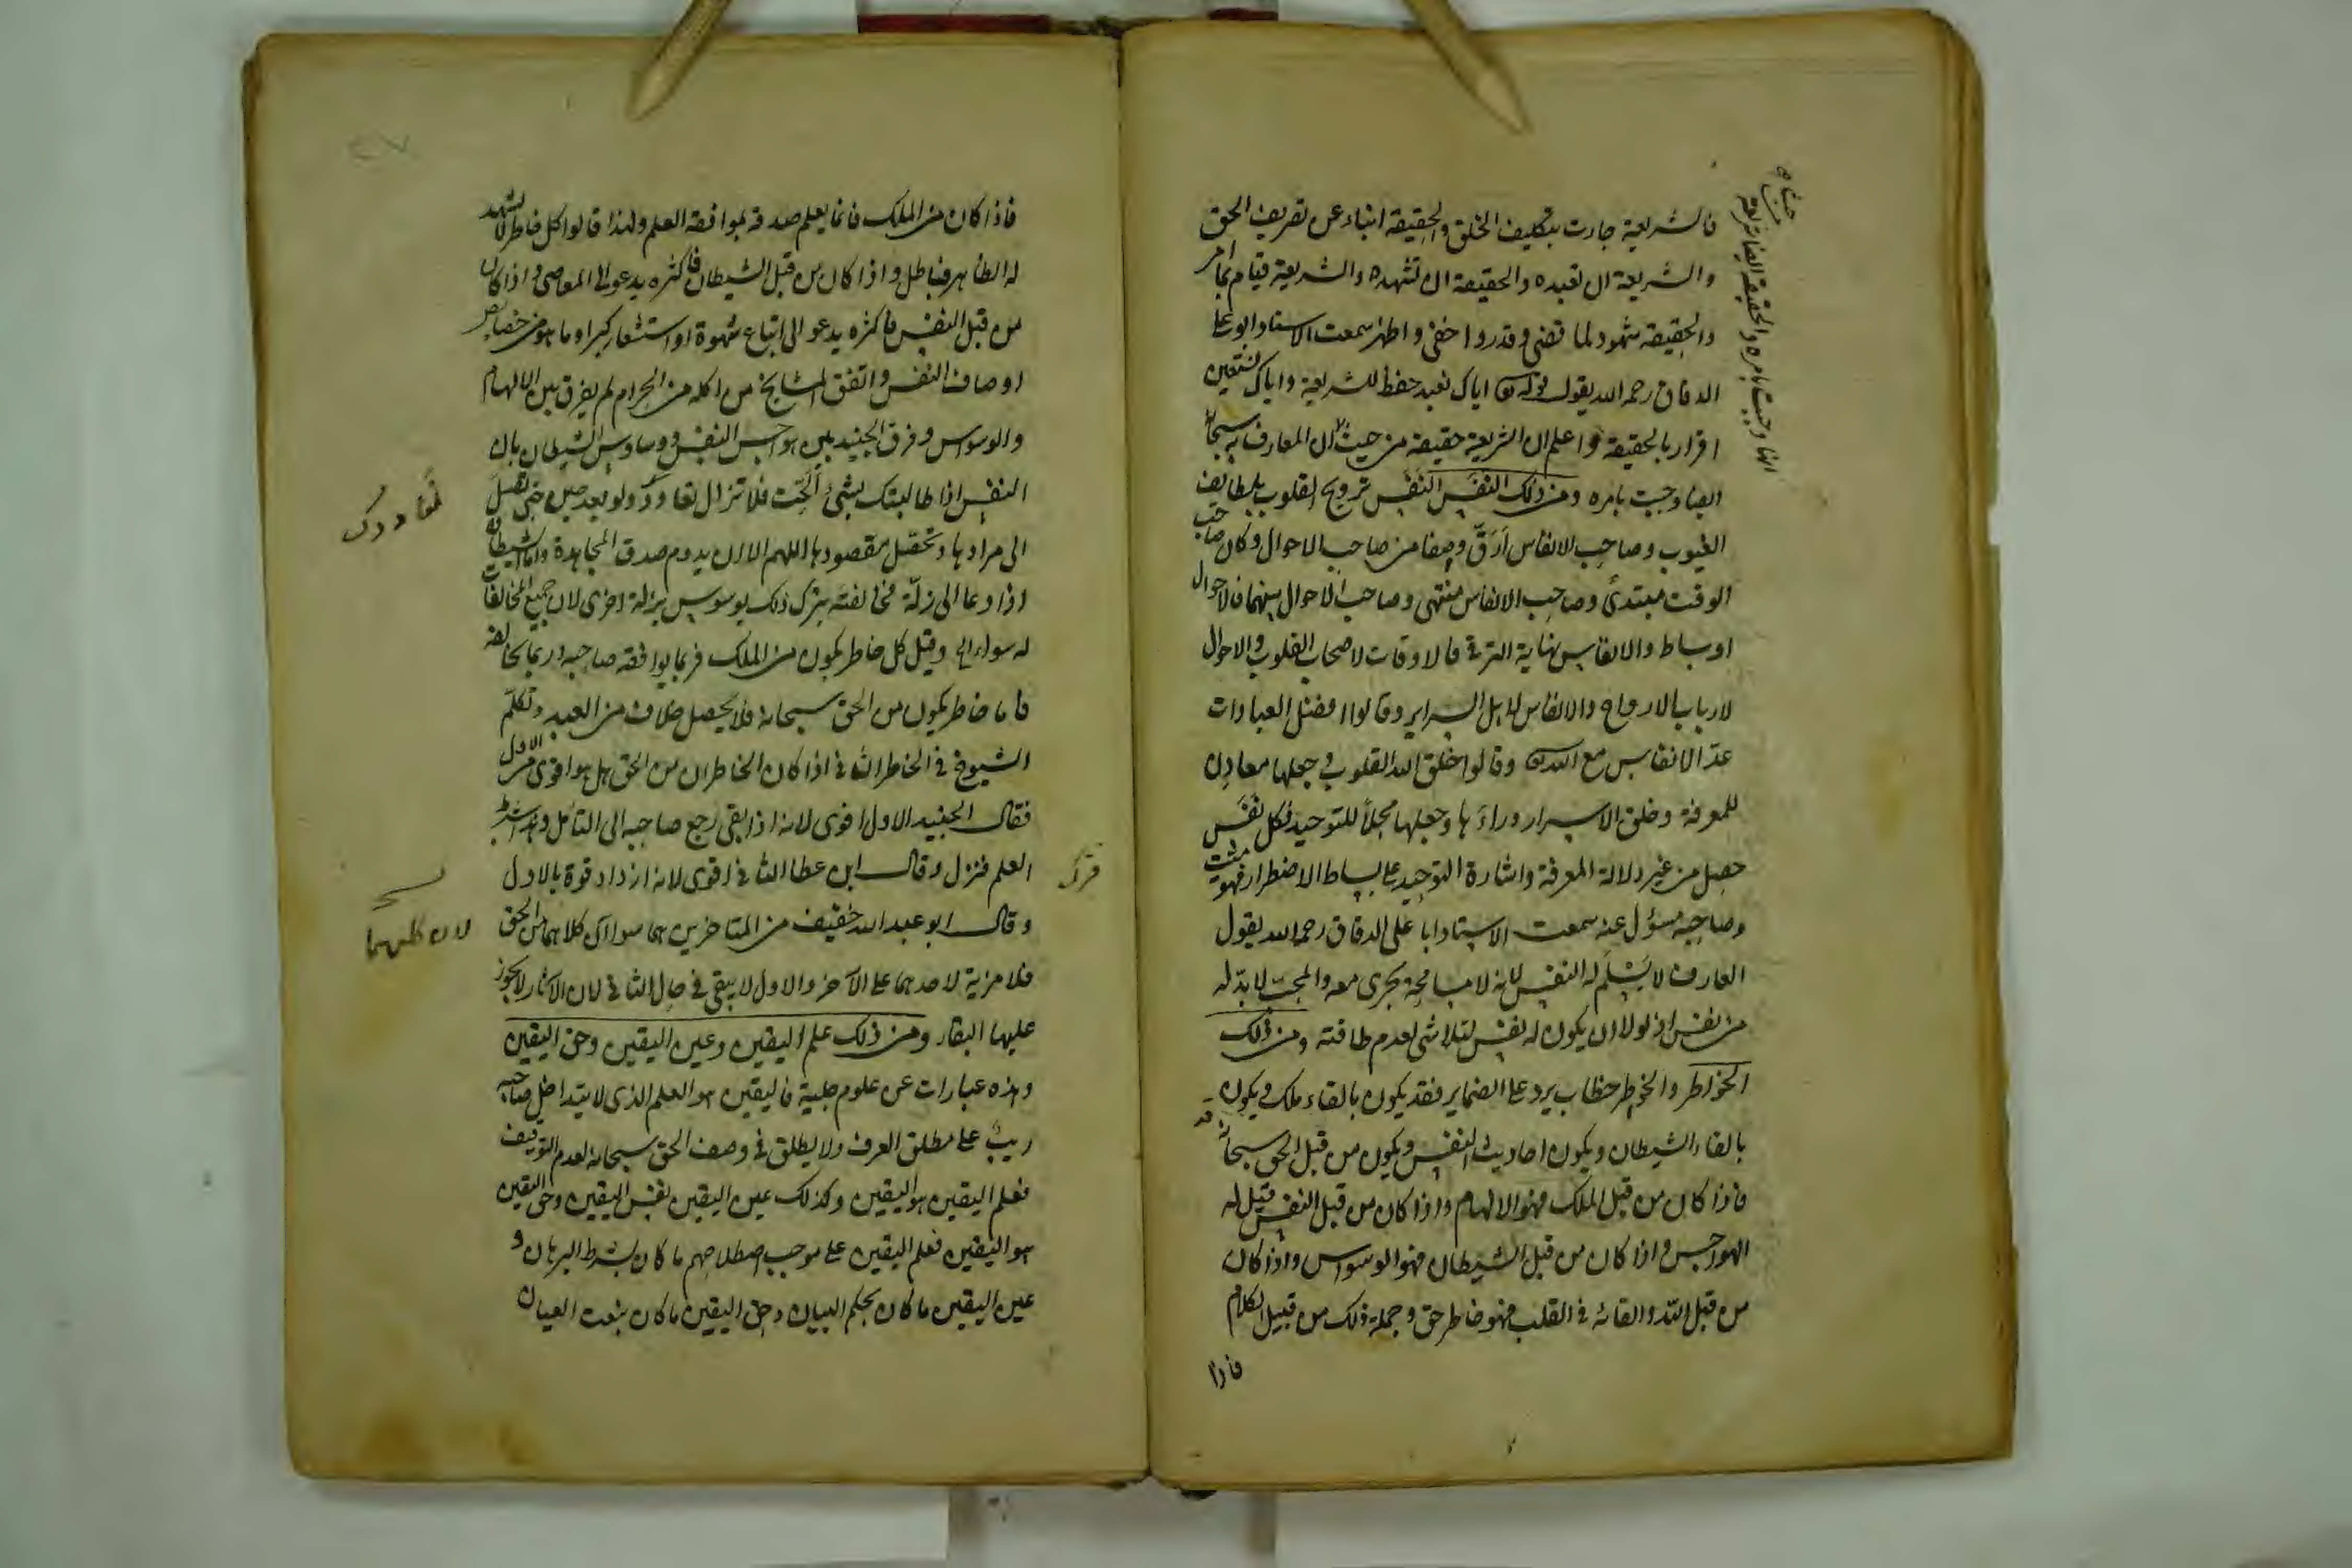 فالشريعة جاءت بتكليف الخلق والحقيقة انباء عن تصريف الحق
والشريعة ان تعبده والحقيقة ان تشهده والشريعة قيام بما امر
والحقيقة شهود لما قضى وقدر واخفى واظهر سمعت الاستاد ابو علي
الدقاق رحمه الله يقول قوله تعالى اياك نعبد حفظ للشريعة واياك نستعين
اقرار بالحقيقة واعلم ان الشريعة حقيقة من حيث ان المعارف به سبحانه
ايضا وجبت بامره ومن ذلك النفَس النفَس ترويح القلوب بلطايف
الغيوب وصاحب الانفاس ارَقّ وصفا من صاحب الاحوال وكان صاحب
الوقت مبتدئ وصاحب الانفاس منتهى وصاحب الاحوال بينهما فالاحوال
اوساط والانفاس نهاية الترقي فالاوقات لاصحاب القلوب والاحوال
لارباب الارواح والانفاس لاهل السراير وقالوا افضل العبادات
عدّ الانفاس مع الله تعالى وقالوا خلق الله القلوب وجعلها معادن
للمعرفة وخلق الاسرار وراءها وجعلها محلاً للتوحيد فكل نفَس
حصل من غير دلالة المعرفة واشارة التوحيد على بساط الاضطرار فهو ميت
وصاحبه مسؤل عنه سمعت الاستاد ابا على الدقاق رحمه الله يقول
العارف لا يسلَم له النفس لانه لا مسامحة تجرى معه والمحبّ لا بدّ له
من نفس اذ لولا ان يكون له نفس لتلاشى لعدم طاقته ومن ذلك
الخواطر والخواطر خطاب يرد على الضماير فقد يكون بالقاء ملك ويكون
بالقاء الشيطان ويكون احاديث النفس ويكون من قبل الحق سبحانه
فاذا كان من قبل الملك فهو الالهام واذا كان من قبل النفس قيل له
الهواجس واذا كان من قبل الشيطان فهو الوسواس واذا كان
من قبل الله والقائه في القلب فهو خاطر حق وجملة ذلك من قبيل الكلام
فاذا
فاذا كان من الملك فانما يعلم صدقه بموافقة العلم ولهذا قالوا كل خاطر لا يشهد
له الظاهر فباطل واذا كان من قبل الشيطان فاكثره يدعو الى المعاصي واذا كان
من قبل النفس فاكثره يدعو الى اتباع شهوة او استشعار كبر او ما هو من خصايص
اوصاف النفس واتفق المشايخ من اكله من الحرام لم يفرق بين الالهام
والوسواس وفرق الجنيد بين هواجس النفس ووساوس الشيطان بان
النفس اذا طالبتك بشئ الَحّت فلا تزال تعاود ولو بعد حين حتى تصل
الى مرادها وتحصل مقصودها اللهم الا ان يدوم صدق المجاهدة واما الشيطان فانه
اذا دعا الى زلّة فخالفته بترك ذلك يوسوس بزلة اخرى لان جميع المخالفات
له سواء وقيل كل خاطر يكون من الملك فربما يوافقه صاحبه وربما يخالفه
فاما خاطر يكون من الحق سبحانه فلا يحصل خلاف من العبد وتكلم
الشيوخ في الخاطر الثاني اذا كان الخاطران من الحق هل هو اقوى من الاول
فقال الجنيد الاول اقوى لانه اذا بقى رجع صاحبه الى التامل وهذا بشرط
العلم فنزل وقال ابن عطا الثاني اقوى لانه ازداد قوة بالاول
وقال ابو عبد الله خفيف من المتاخرين هما سواء لان كلاهما من الحق
فلا مزية لاحدهما على الآخر والاول لا يبقى في حال الثاني لان الآثار لا يجوز
عليها البقاء ومن ذلك علم اليقين وعين اليقين وحق اليقين
وهذه عبارات عن علوم جلية فاليقين هو العلم الذى لا يتداخل صاحبه
ريبٌ على مطلق العرف ولا يطلق في وصف الحق سبحانه لعدم التوقيف
فعلم اليقين هو اليقين وكذلك عين اليقين نفس اليقين وحق اليقين
هو اليقين فعلم اليقين على موجب اصطلاحهم ما كان بشرط البرهان و
عين اليقين ما كان بحكم البيان وحق اليقين ما كان بنعت العيان
لان كليهما